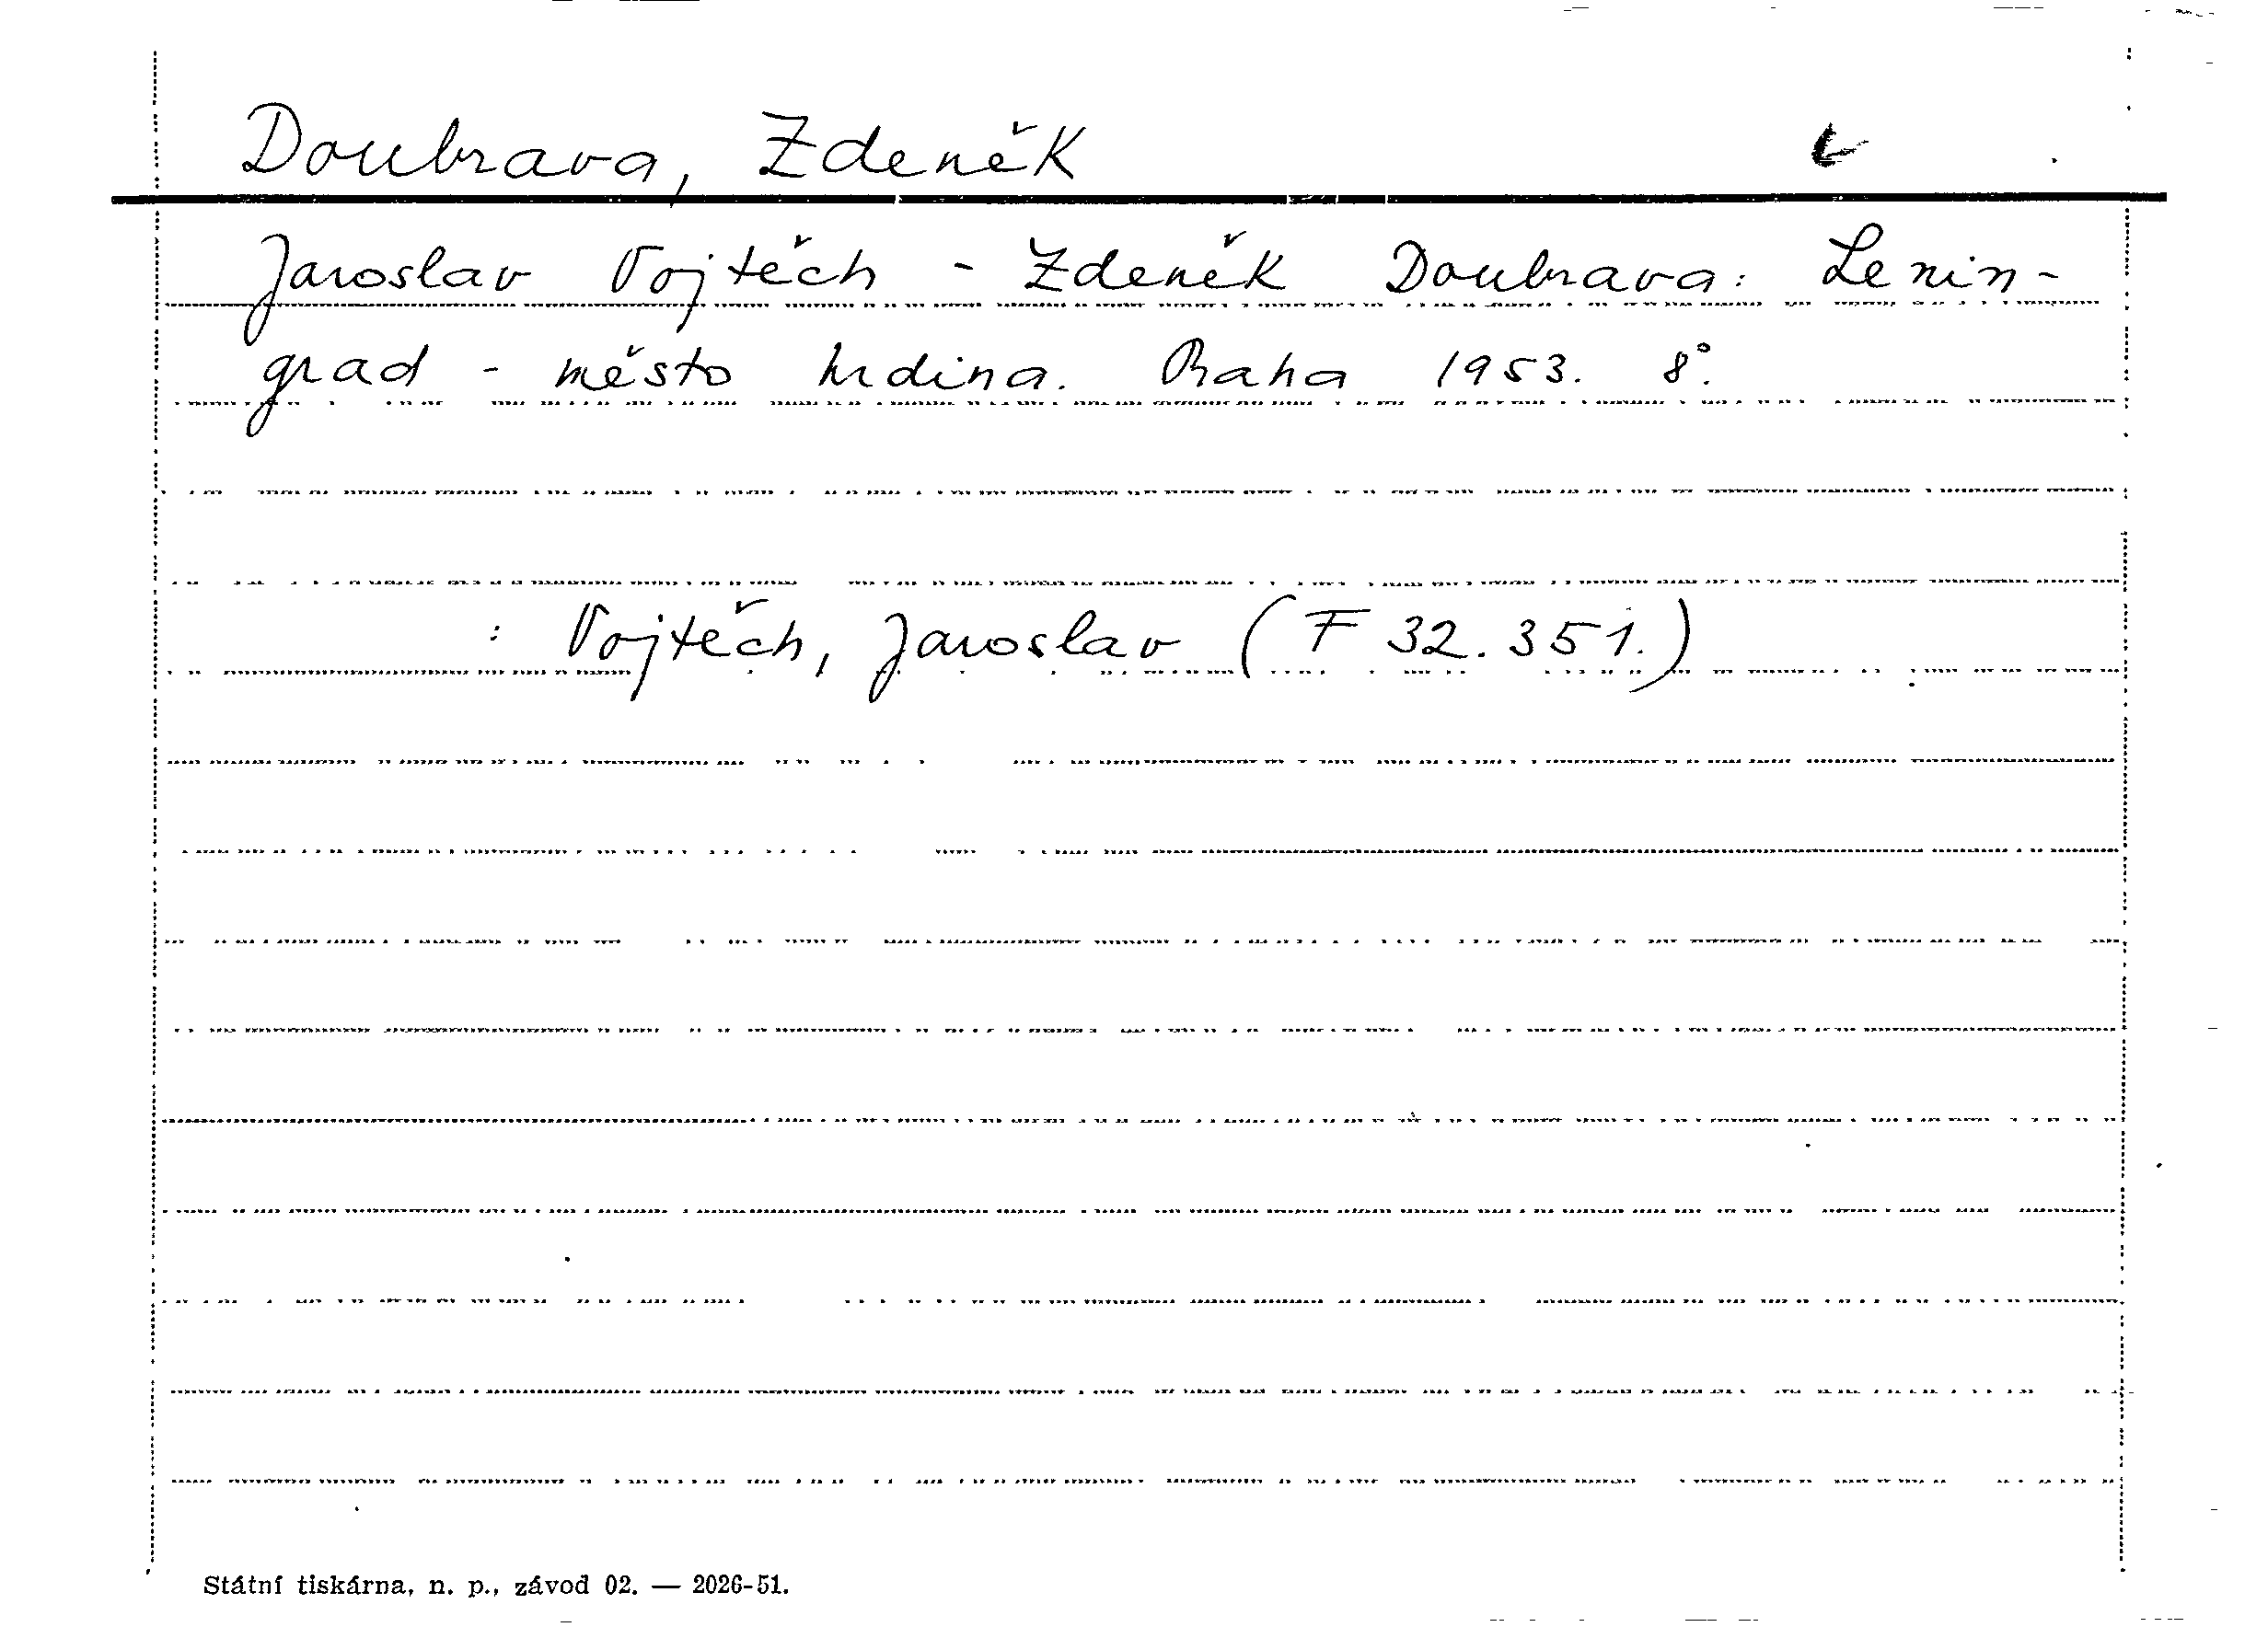 Doubrava, Zdeněk
Jaroslav Vojtěch - Zdeněk Doubrava: Lenin-
grad - město hrdina. Praha 1953. 8°.
: Vojtěch, Jaroslav (F 32.351.)
Státní tiskárna, n. p., závod 02. — 2026-51.